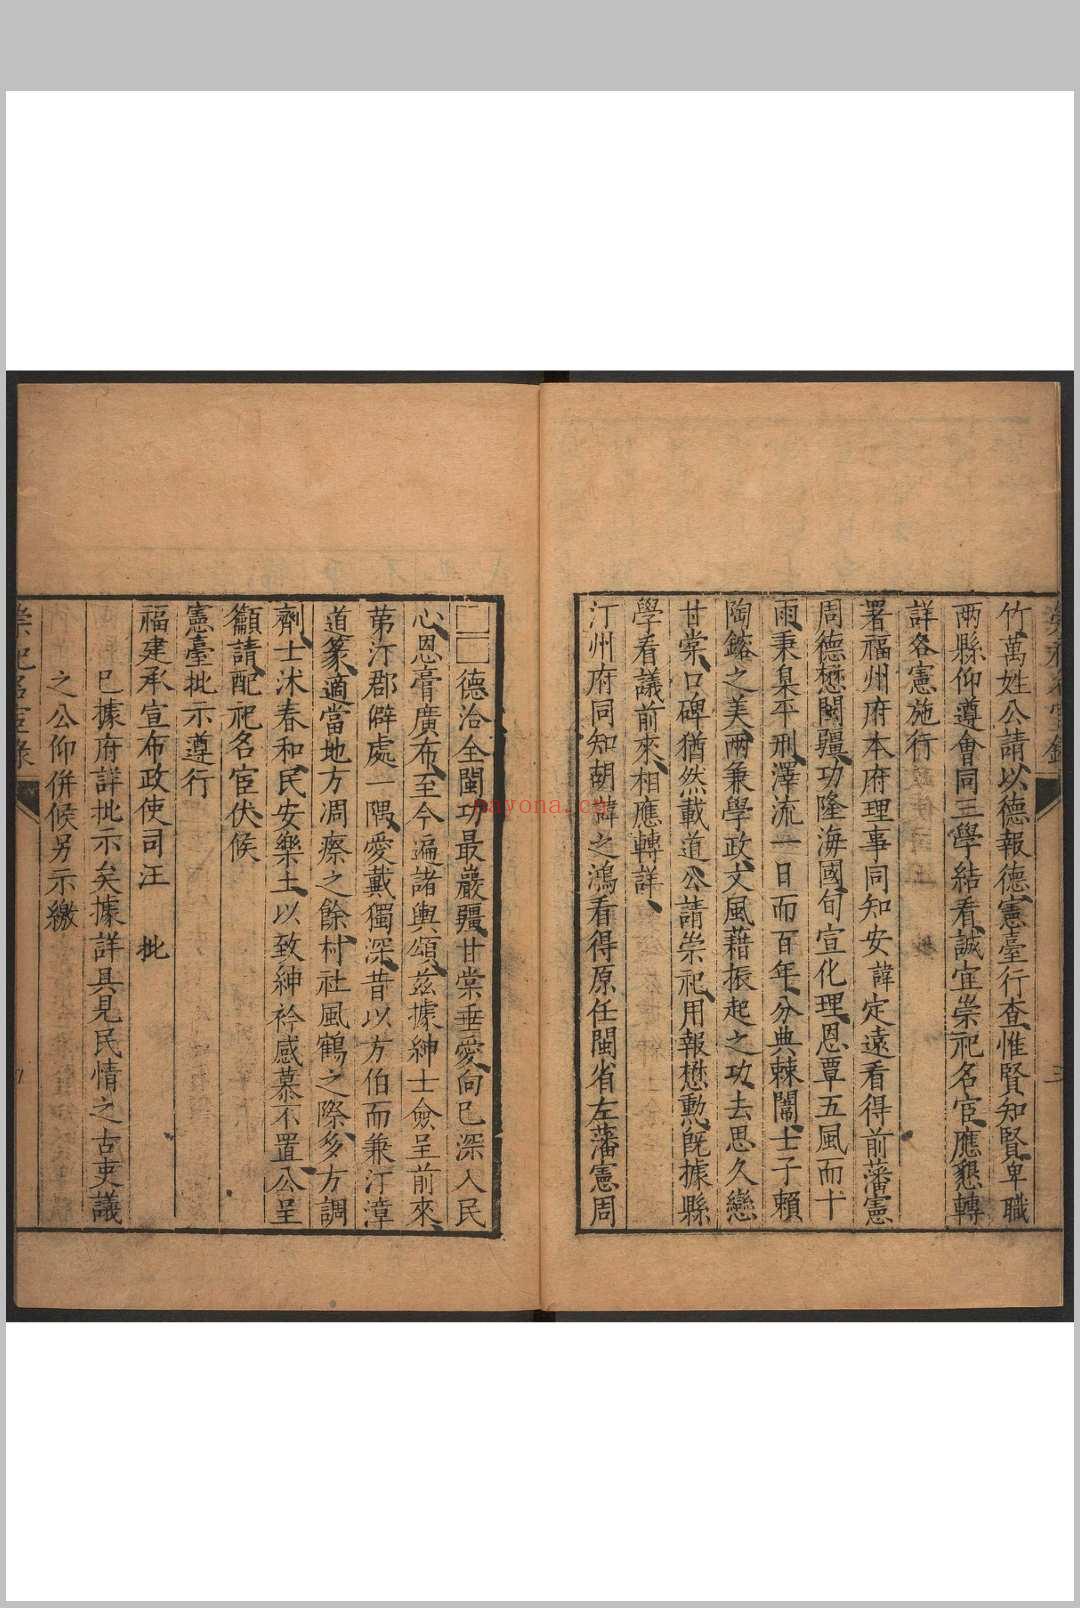 竹萬姓公請以德報德憲臺行查惟賢知賢卑職
兩縣仰遵會同三學結看誠宜崇祀名宦應懇轉
詳各憲施行
署福州府本府理事同知安諱定遠看得前藩憲
周德懋閩疆功隆海國旬宣化理恩覃五風而十
雨秉臬平刑澤流一日而百年分典棘闈士子賴
陶鎔之美兩兼學政文風藉振起之功去思久戀
甘棠口碑猶然載道公請崇祀用報懋勲既據縣
學看議前來相應轉詳
汀州府同知胡諱之鴻看得原任閩省左藩憲周
德洽全閩功最巖疆甘棠垂愛向已深入民
心恩膏廣布至今遍諸輿頌茲據紳士僉呈前來
苐汀郡僻處一隅愛戴獨深昔以方伯而兼汀漳
道篆適當地方凋瘵之餘村社風鶴之際多方調
劑士沐春和民安樂土以致紳衿感慕不置公呈
籲請配祀名宦伏候
憲臺批示遵行
福建承宣布政使司汪 批
已據府詳批示矣據詳具見民情之古吏議
之公仰併候另示繳
崇祀名宦錄
nayona.cn